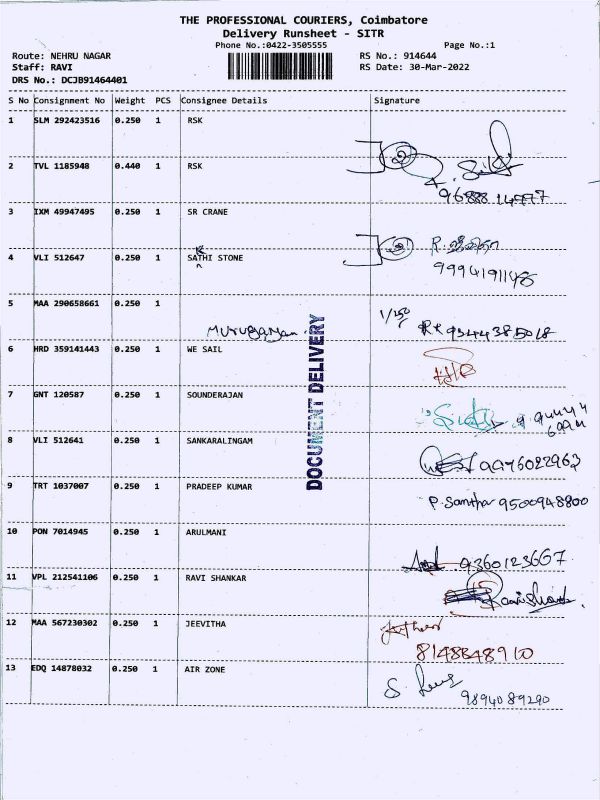 THE PROFESSIONAL COURIERS, Coimbatore
Delivery Runsheet - SITR
Phone No.:0422-3505555 Page No.:1
Route: NEHRU NAGAR RS No.: 914644
Staff: RAVI RS Date: 30-Mar-2022
DRS No.: DCJB91464401
S No Consignment No Weight PCS Consignee Details Signature
1 SLM 292423516 0.250 1 RSK
2 TVL 1185948 0.440 1 RSK
3 IXM 49947495 0.250 1 SR CRANE
4 VLI 512647 0.250 1 SATHI STONE
5 MAA 290658661 0.250 1
Murugangan
6 HRD 359141443 0.250 1 WE SAIL
7 GNT 120587 0.250 1 SOUNDERAJAN
8 VLI 512641 0.250 1 SANKARALINGAM
9 TRT 1037007 0.250 1 PRADEEP KUMAR
P. Santhar 9500948800
10 PON 7014945 0.250 1 ARULMANI
9360123667
11 VPL 212541106 0.250 1 RAVI SHANKAR
12 MAA 567230302 0.250 1 JEEVITHA
8148848910
13 EDQ 14878032 0.250 1 AIR ZONE
9894089290
DOCUMENT DELIVERY